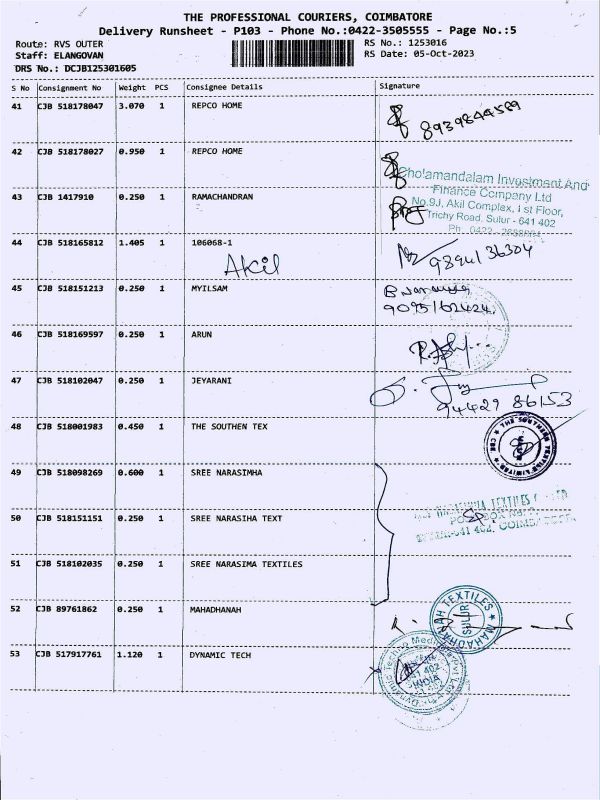 THE PROFESSIONAL COURIERS, COIMBATORE
Delivery Runsheet - P103 - Phone No.:0422-3505555 - Page No.:5
Route: RVS OUTER RS No.: 1253016
Staff: ELANGOVAN RS Date: 05-Oct-2023
DRS No.: DCJB125301605
S No Consignment No Weight PCS Consignee Details Signature
41 CJB 518178047 3.070 1 REPCO HOME
8939844589
42 CJB 518178027 0.950 1 REPCO HOME
Cholamandalam Investment And
Finance Company Ltd
43 CJB 1417910 0.250 1 RAMACHANDRAN
No.9J, Akil Complex, I st Floor,
Trichy Road, Sulur - 641 402
Ph. 0422 -
44 CJB 518165812 1.405 1 106068-1
Akil
9894136304
45 CJB 518151213 0.250 1 MYILSAM
9095162424
46 CJB 518169597 0.250 1 ARUN
47 CJB 518102047 0.250 1 JEYARANI
94429 86153
48 CJB 518001983 0.450 1 THE SOUTHEN TEX
49 CJB 518098269 0.600 1 SREE NARASIMHA
TEXTILES
50 CJB 518151151 0.250 1 SREE NARASIHA TEXT
51 CJB 518102035 0.250 1 SREE NARASIMA TEXTILES
52 CJB 89761862 0.250 1 MAHADHANAH
MAHADHANAH TEXTILES
SULUR
53 CJB 517917761 1.120 1 DYNAMIC TECH
INDIA